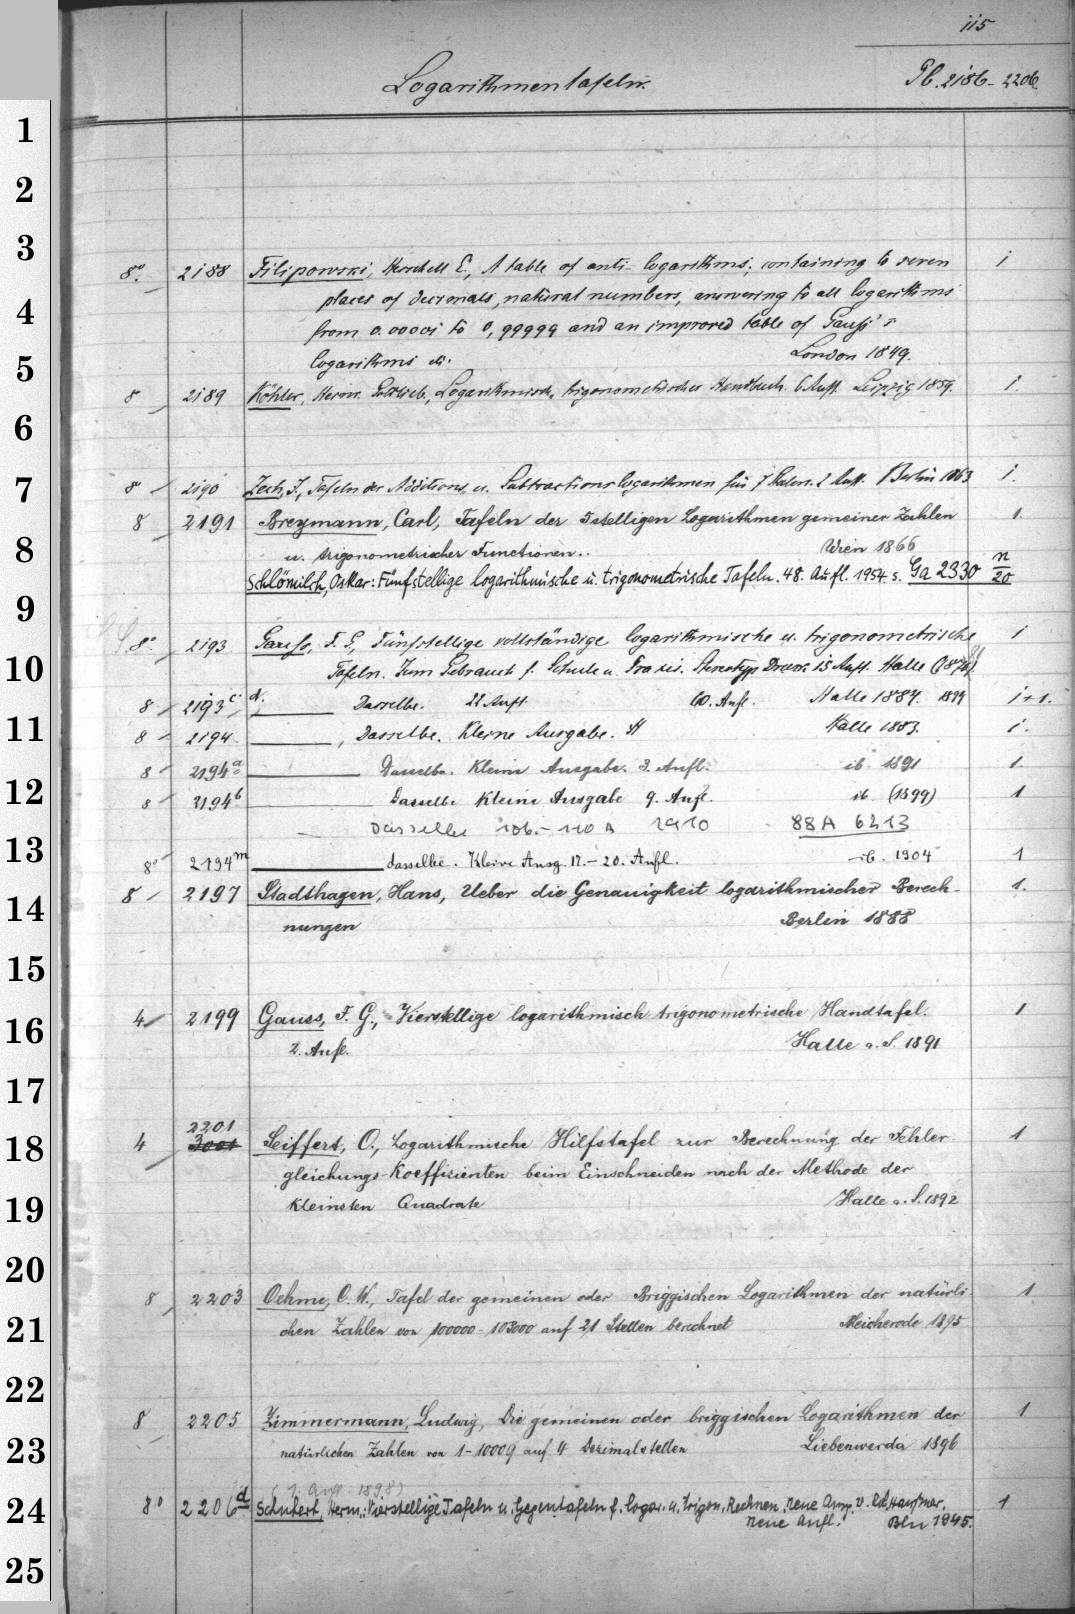 115
Logarithmentafeln.
Pb. 2186-2206
1
2
3
8°. 2188 Filipowski, Herschell E., A table of anti-logarithms; containing to seven 1
places of decimals, natural numbers, answering to all logarithms
4
from 0.00001 to 0,99999 and an improved table of Gauss's
logarithms etc. London 1849.
5
8 2189 Köhler, Herm. Gottlieb, Logarithmisch-trigonometrisches Handbuch. 6 Aufl. Leipzig 1859. 1.
6
7
8 2190 Zech, J., Tafeln der Additions u. Subtractionslogarithmen für 7 Stellen. 2 Aufl. Berlin 1863 1.
8 2191 Breymann, Carl, Tafeln der 5stelligen Logarithmen gemeiner Zahlen 1
8
u. trigonometrischer Functionen.. Wien 1866
Schlömilch, Oskar: Fünfstellige logarithmische u. trigonometrische Tafeln. 48. Aufl. 1954 s. Ga 2330 n/20
9
8°. 2193 Gauss, F. G., Fünfstellige vollständige logarithmische u. trigonometrische 1
10
Tafeln. Zum Gebrauch f. Schule u. Praxis. Stereotyp Druck. 15 Aufl. Halle
8 2193 c. d. Dasselbe. 22 Aufl. 60. Aufl. Halle 1884. 1899 1+1.
11
8 2194 , Dasselbe. Kleine Ausgabe. Halle 1883. 1.
8 2194a Dasselbe. Kleine Ausgabe. 3. Aufl. ib. 1891 1
12
8 2194b Dasselbe Kleine Ausgabe 9. Aufl. ib. (1899) 1
Dasselbe 106.-110 A 1910 88A 6213
13
8° 2194m dasselbe. Kleine Ausg. 17.-20. Aufl. ib. 1904 1
8 2197 Stadthagen, Hans, Ueber die Genauigkeit logarithmischer Berech- 1.
14
nungen Berlin 1888
15
4 2199 Gauss, F. G., Vierstellige logarithmisch trigonometrische Handtafel. 1
16
2. Aufl. Halle a. S. 1891
17
2201
18
4 3001 Seiffert, O., Logarithmische Hilfstafel zur Berechnung der Fehler 1
gleichungs-Koeffizienten beim Einschneiden nach der Methode der
19
kleinsten Quadrate Halle a. S. 1892
20
8 2203 Oehme, O. W., Tafel der gemeinen oder Briggischen Logarithmen der natürli 1
21
chen Zahlen von 100000-103000 auf 21 Stellen berechnet Bleicherode 1895
22
8 2205 Zimmermann, Ludwig, Die gemeinen oder briggischen Logarithmen der 1
23
natürlichen Zahlen von 1-10009 auf 4 Dezimalstellen Liebenwerda 1896
(1. Aufl. 1898)
24
8° 2206d Schubert, Herm.: Vierstellige Tafeln u. Gegentafeln f. logar. u. trigon. Rechnen. neue Ausg. v. Rd. Haussner. 1
neue Aufl. Bln 1945.
25